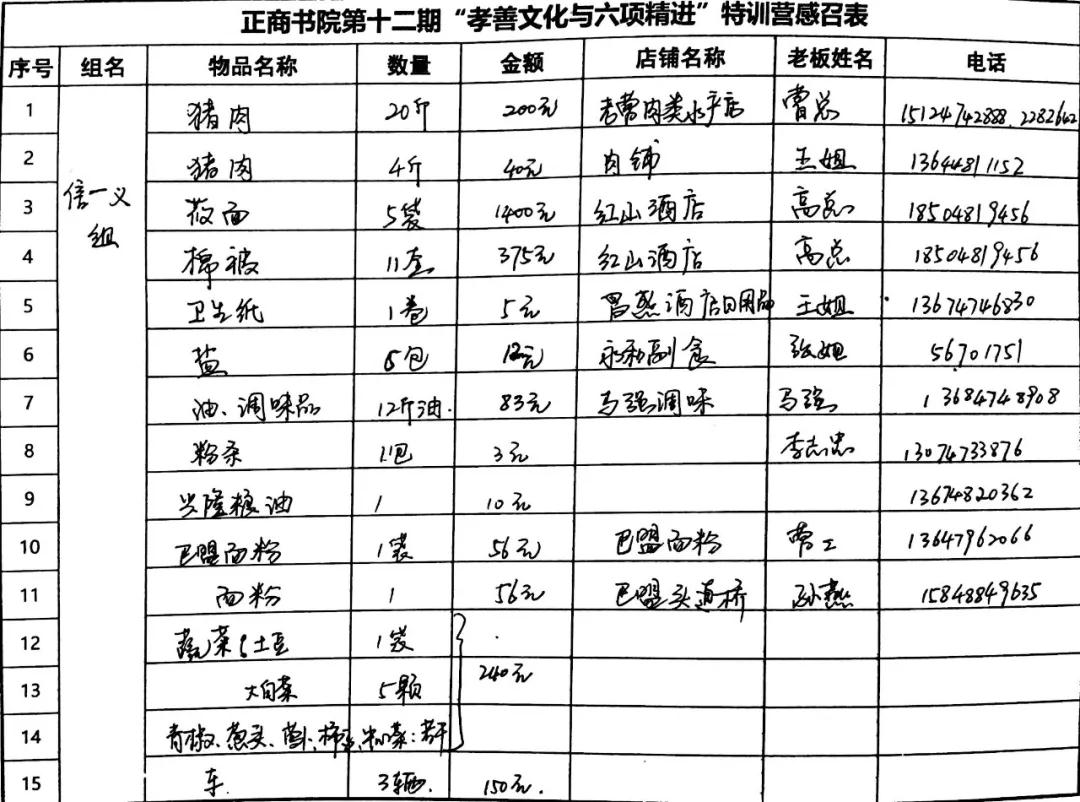 正商书院第十二期“孝善文化与六项精进”特训营感召表
序号 组名 物品名称 数量 金额 店铺名称 老板姓名 电话
信一义组
1 猪肉 20斤 200元 老曹肉类水产店 曹总 15124742888.2282642
2 猪肉 4斤 40元 肉铺 王姐 13644811152
3 莜面 5袋 1400元 红山酒店 高总 18504819456
4 棉被 11套 375元 红山酒店 高总 18504819456
5 卫生纸 1卷 5元 酒店日用品 王姐 13674746830
6 盐 包 12元 永和副食 张姐 56701751
7 油、调味品 12斤油. 83元 马强调味 马强 13684748908
8 粉条 1包 3元 李志忠 13074733876
9 兴隆粮油 1 10元 13674820362
10 巴盟面粉 1袋 56元 巴盟面粉 13647962066
11 面粉 1 56元 巴盟头道桥 孙燕 15848849635
12 蔬菜:土豆 1袋
13 大白菜 5颗 240元
14 青椒、葱头、 若干
15 车. 3辆. 150元.